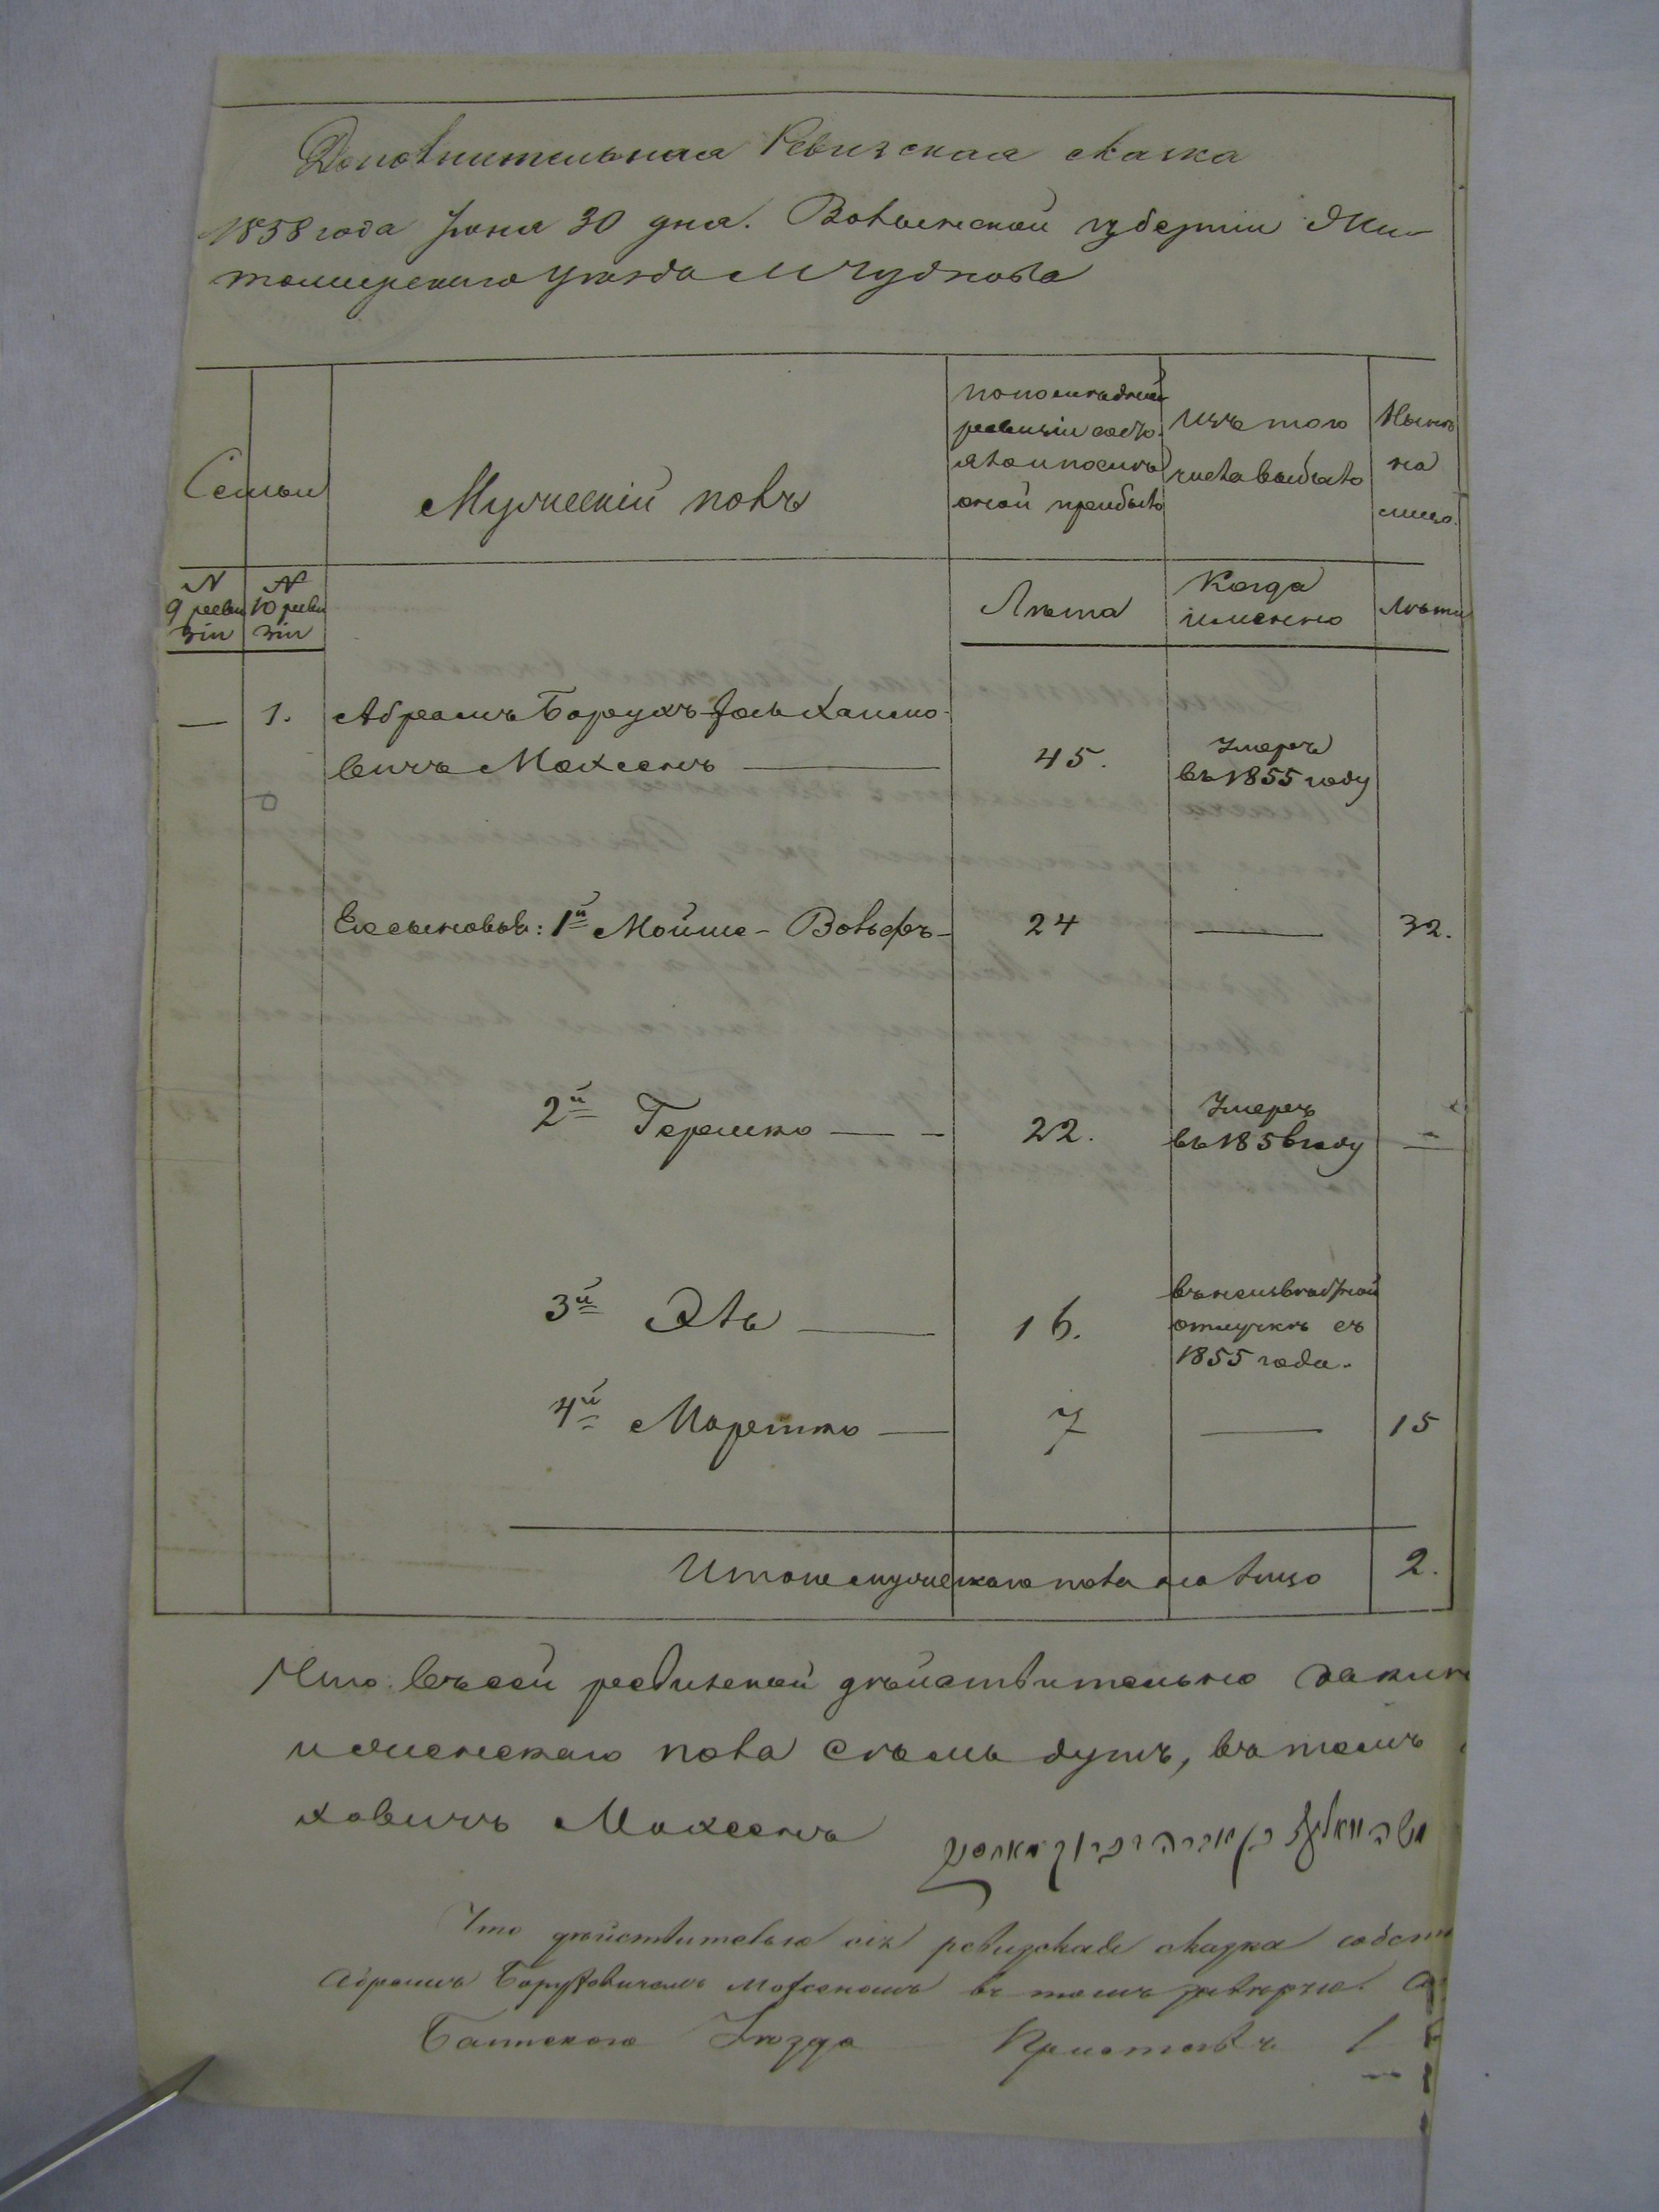 Дополнительная Ревизская сказка
1858 года Іюня 30 дня. Волынской губерніи Жи-
томирскаго уѣзда М Чуднова
Семьи
Мужескій полъ
по последней
ревизіи состо-
яло и послѣ
оной прибыло
Изъ того
числа выбыло
Нынѣ
на
лицо.
N
9 реви
зіи
N
10 реви
зіи
Лѣта
Когда
именно
Лѣта
—
1.
Абрамъ Борухъ Хаимо-
вичъ Моксенъ
45.
Умеръ
въ 1855 году
Его сыновья: 1й Мойше-Вольфъ
24
—
32.
2й Гершко
22.
Умеръ
въ 1856 году
—
3й Эль
16.
въ неизвѣстной
отлучкѣ съ
1855 года.
4й Мортко
7
—
15
Итого мужескаго пола на лицо
2.
Что въ сей ревизской дѣйствительно
и женскаго пола семь душъ, въ томъ
ховичъ Моксенъ
Что дѣйствительно сія ревизская сказка
Абрамъ Боруховичемъ Моксеномъ въ томъ завѣряю.
Балтскаго Уѣзда Приставъ